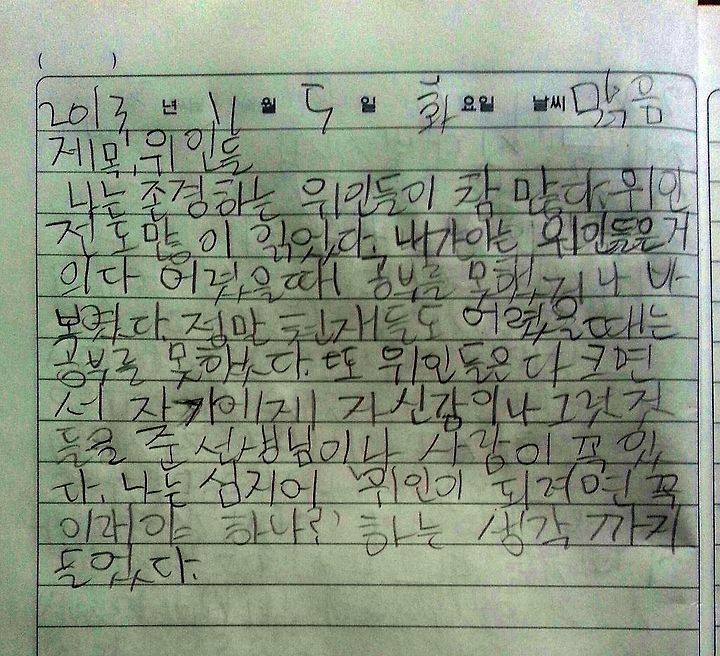 ( )
2013 년 11 월 5 일 화 요일 날씨 맑음
제목, 위인들
나는 존경하는 위인들이 참 많다. 위인
전도 많이 읽었다. 내가 아는 위인들은 거
의다 어렸을때 공부를 못했거나 바
보였다. 정말 천재들도 어렸을때는
공부를 못했다. 또 위인들은 다 크면
서 자기에게 자신감이나 그런것
들을 준 선생님이나 사람이 꼭 있
다. 나는 심지어 '위인이 되려면 꼭
이래야 하나?' 하는 생각까지
들었다.